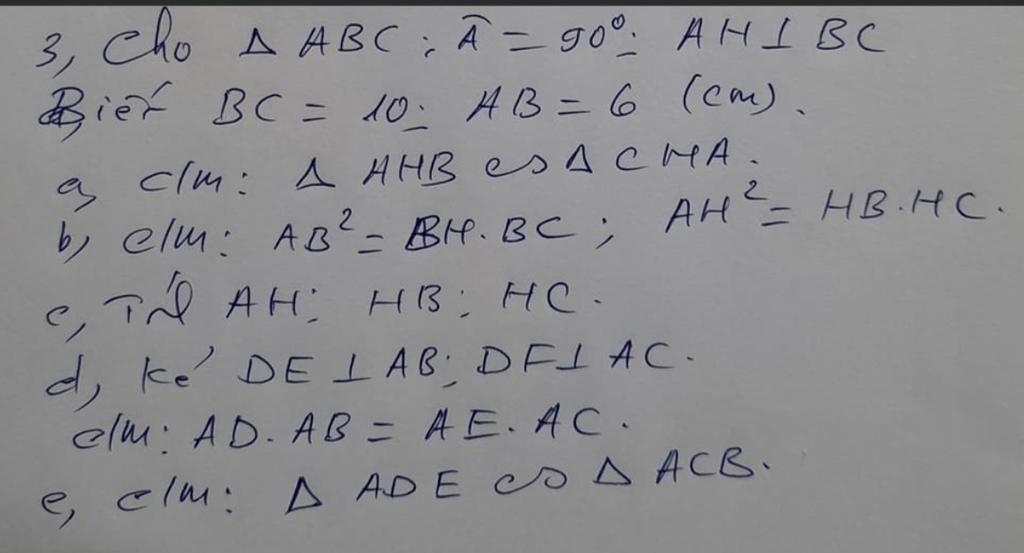 3, Cho Δ ABC ; Â = 90°; AH ⊥ BC
Biết BC = 10; AB = 6 (cm).
a, c/m: Δ AHB ∽ Δ CHA.
b, c/m: AB² = BH.BC ; AH² = HB.HC.
c, Tíl AH; HB; HC.
d, Kẻ DE ⊥ AB; DF ⊥ AC.
c/m: AD.AB = AE.AC.
e, c/m: Δ ADE ∽ Δ ACB.